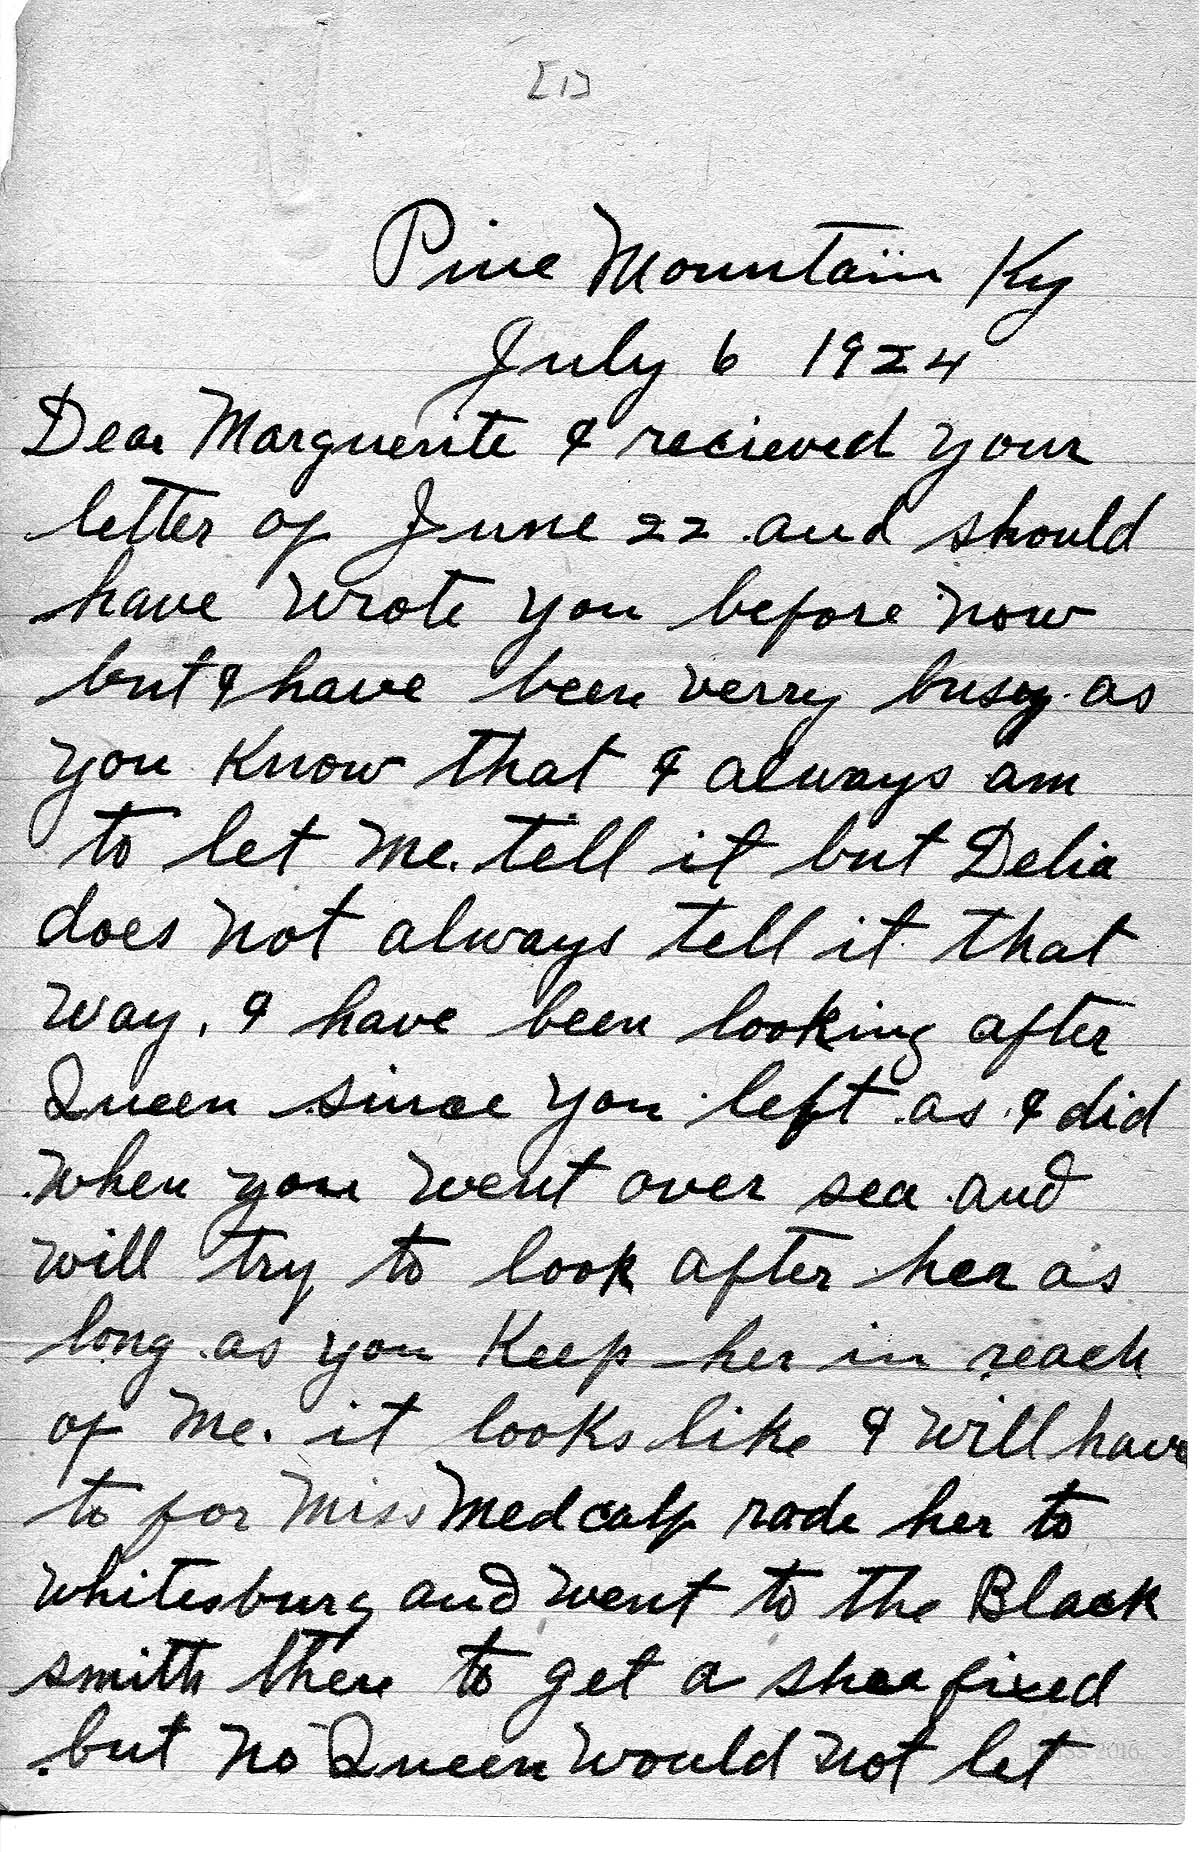 [1]
Pine Mountain Ky
July 6 1924
Dear Marguerite I recieved your
letter of June 22 and should
have wrote you before now
but I have been verry busy as
you Know that I always am
to let me. tell it but Delia
does not always tell it that
way. I have been looking after
Queen since you left as I did
when you went over sea and
will try to look after her as
long as you Keep her in reach
of me. it looks like I will have
to for Miss Medcalf rode her to
whitesburg and went to the Black
smith there to get a shoe fixed
but no Queen would not let
2016